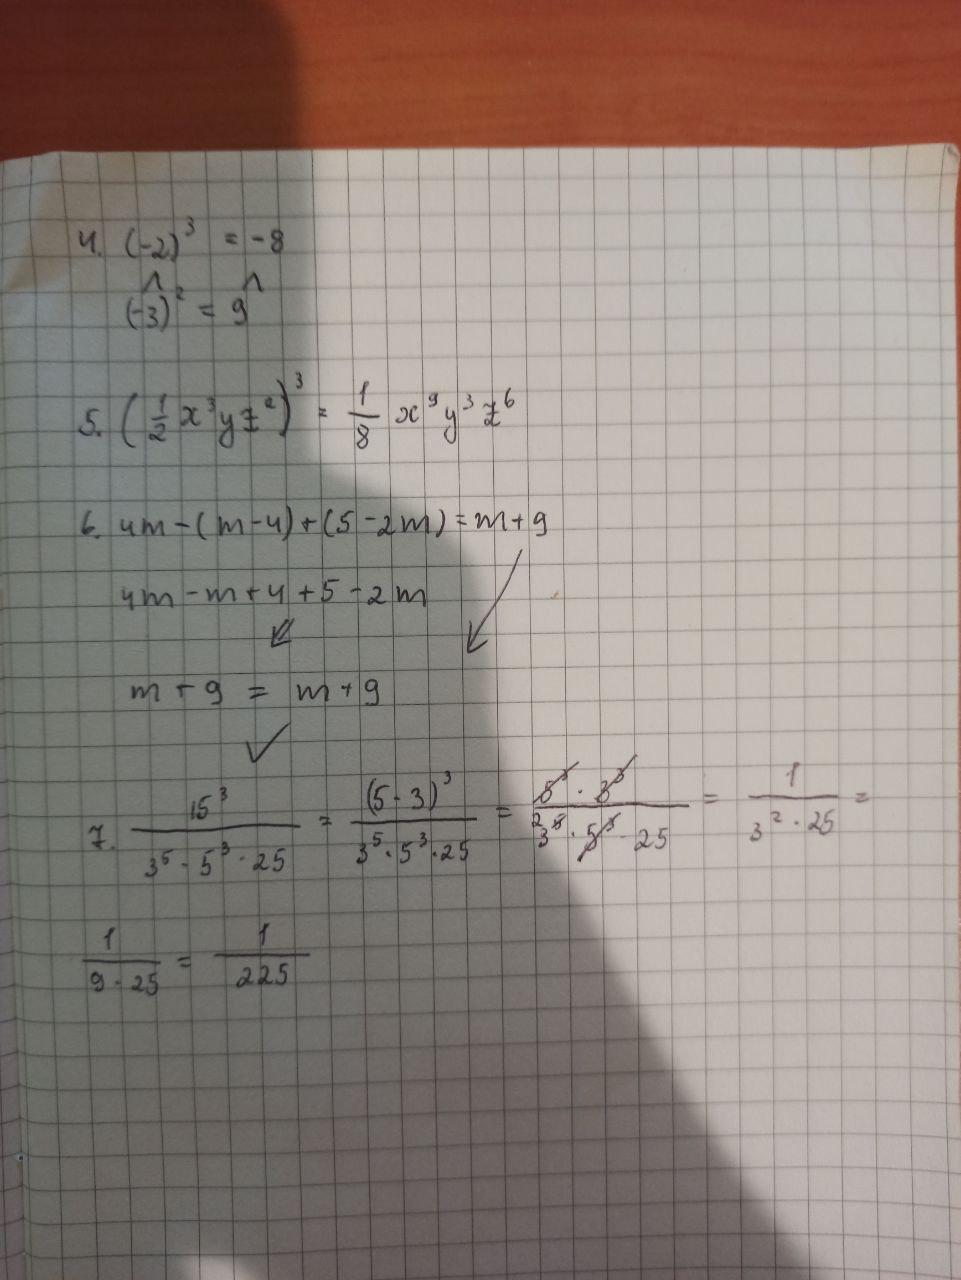 4. (-2)³ = -8
∧ ∧
(-3)² = 9
5. (1/2 x³yz²)³ = 1/8 x⁹y³z⁶
6. 4m - (m-4) + (5-2m) = m+9
4m - m + 4 + 5 - 2m
m + 9 = m + 9
7. 15³/(3⁵ · 5³ · 25) = (5·3)³/(3⁵ · 5³ · 25) = 5³ · 3³/(3⁵ ² · 5³ · 25) = 1/(3² · 25) =
1/(9 · 25) = 1/225